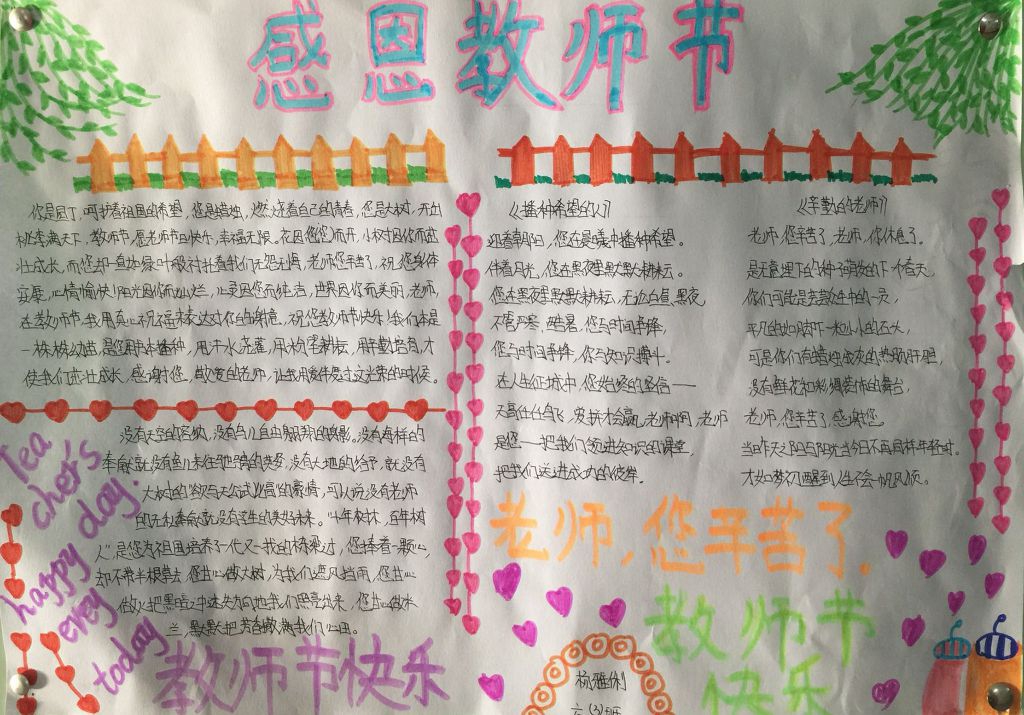 感恩教师节
你是园丁,呵护着祖国的希望,您是蜡烛,燃烧着自己的青春,您是大树,开出
桃李满天下,教师节,愿老师节日快乐,幸福无限。花因您而开,小树因你而茁
壮成长,而您却一直如绿叶般衬托着我们无怨无悔,老师您辛苦了,祝您身体
安康,心情愉快!阳光因你而灿烂,心灵因您而纯洁,世界因你而美丽,老师,
在教师节,我用真心祝福来表达对你的谢意,祝您教师节快乐!我们本是
一株株幼苗,是您用中播种,用汗水浇灌,用心耕耘,用辛勤培育,才
使我们茁壮成长,感谢您,敬爱的老师,让我用
没有天空的宽纳,没有鸟儿自由翱翔的身影,没有海样的
奉献就没有鱼儿未往驰骋的快意,没有大地的给予,就没有
大树的欲与天公试比高的豪情,可以说没有老师
的无私奉献就没有学生的美好未来。“十年树木,百年树
人”,是您为祖国培养了一代又一我的栋梁才,您捧着一颗心,
却不带半根草去,您甘心做大树,为我们遮风挡雨,您甘心
做火把黑暗之中迷失方向地我们照亮出来,您甘心做木
兰,默默把芳香撒满我们心田。
Tea
cher's
happy day!
every
today
教师节快乐
《播种希望的人》
迎着朝阳,您在晨曦中播种希望。
伴着月光,您在黑夜里默默耕耘。
您在黑夜里默默耕耘,无论白昼、黑夜,
不管严寒、酷暑,您与时间争锋,
您与时间争锋,你与知识搏斗。
在人生征城中,您始终的坚信——
天高任鸟飞,爱拼才会赢,老师啊,老师
是您——把我们领进知识的课堂,
把我们运进成功的彼岸.
《辛勤的老师》
老师,您辛苦了,老师,你休息了。
是无意埋下的种子萌发的下一个春天,
你们可能是芸芸众生中的一员,
平凡的如脚下一粒小小的石头,
可是你们有蜡烛成灰的热肠肝胆,
没有鲜花和彩绸装饰的舞台,
老师,您辛苦了,感谢您。
当昨天的阳光当今日不再同样年轻时.
才如梦初醒到人生会一帆风顺。
老师,您辛苦了.
教师节
快乐
六(3)班